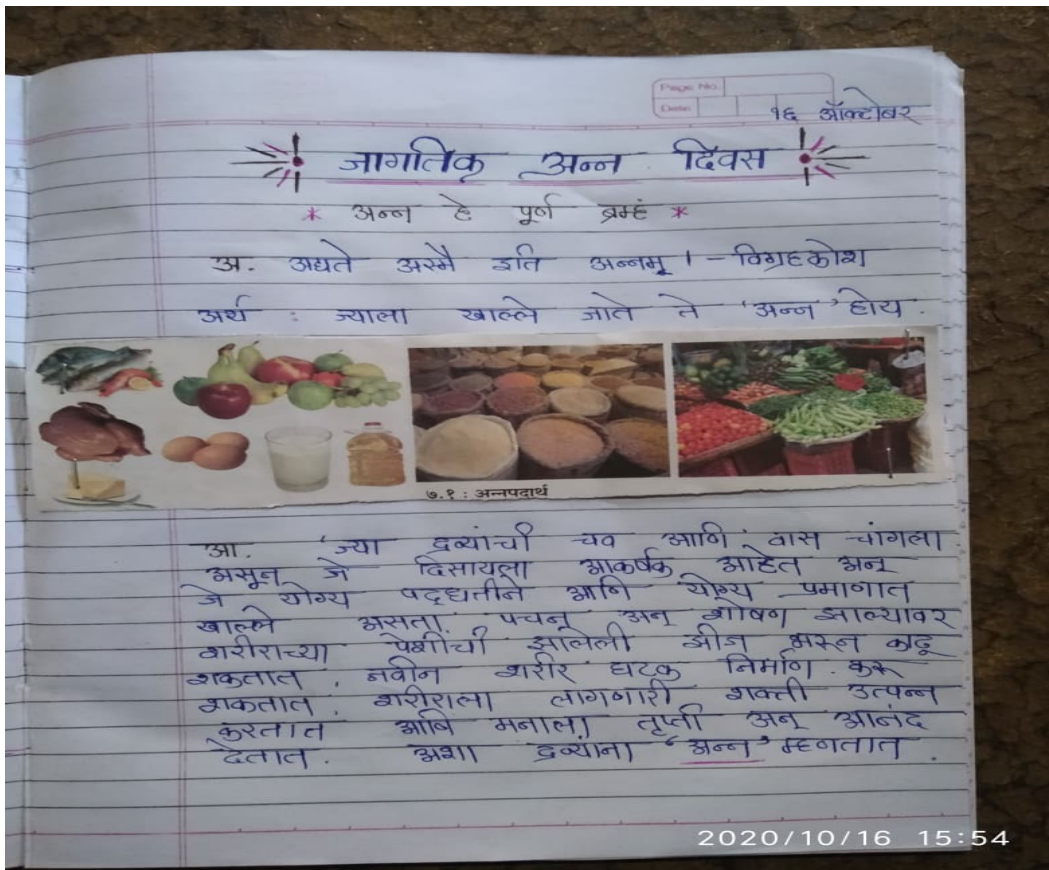 Page No.
Date
१६ ऑक्टोबर
जागतिक अन्न दिवस
* अन्न हे पूर्ण ब्रम्हं *
अ. अद्यते अस्मै इति अन्नम् । - विग्रहकोश
अर्थ : ज्याला खाल्ले जाते ते 'अन्न' होय.
७.१ : अन्नपदार्थ
आ. 'ज्या द्रव्यांची चव आणि वास चांगला
असून जे दिसायला आकर्षक आहेत अन्
जे योग्य पद्धतीने आणि योग्य प्रमाणात
खाल्ले असता पचन अन् शोषण झाल्यावर
शरीराच्या पेशींची झालेली झीज भरून काढू
शकतात. नवीन शरीर घटक निर्माण करू
शकतात. शरीराला लागणारी शक्ती उत्पन्न
करतात आणि मनाला तृप्ती अन् आनंद
देतात. अशा द्रव्यांना 'अन्न' म्हणतात.
2020/10/16 15:54